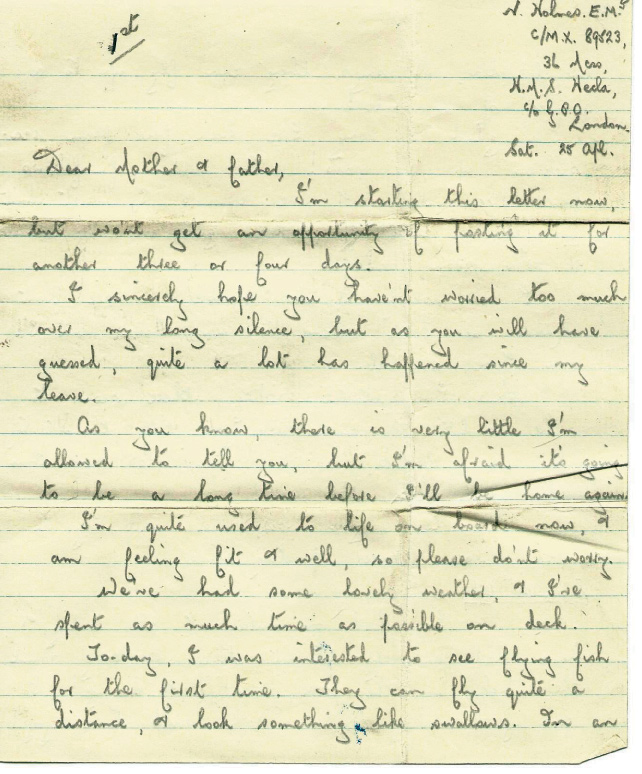 1st
N. Holmes. E.M.
C/M.X. 89523,
36 Mess,
H.M.S. Hecla,
c/o G.P.O.
London.
Sat. 25 Apl.
Dear Mother & father,
I'm starting this letter now,
but wo'nt get an opportunity of posting it for
another three or four days.
I sincerely hope you have'nt worried too much
over my long silence, but as you will have
guessed, quite a lot has happened since my
leave.
As you know, there is very little I'm
allowed to tell you, but I'm afraid it's going
to be a long time before I'll be home again.
I'm quite used to life on board now, &
am feeling fit & well, so please do'nt worry.
We've had some lovely weather, & I've
spent as much time as possible on deck.
To-day, I was interested to see flying fish
for the first time. They can fly quite a
distance, & look something like swallows. In an